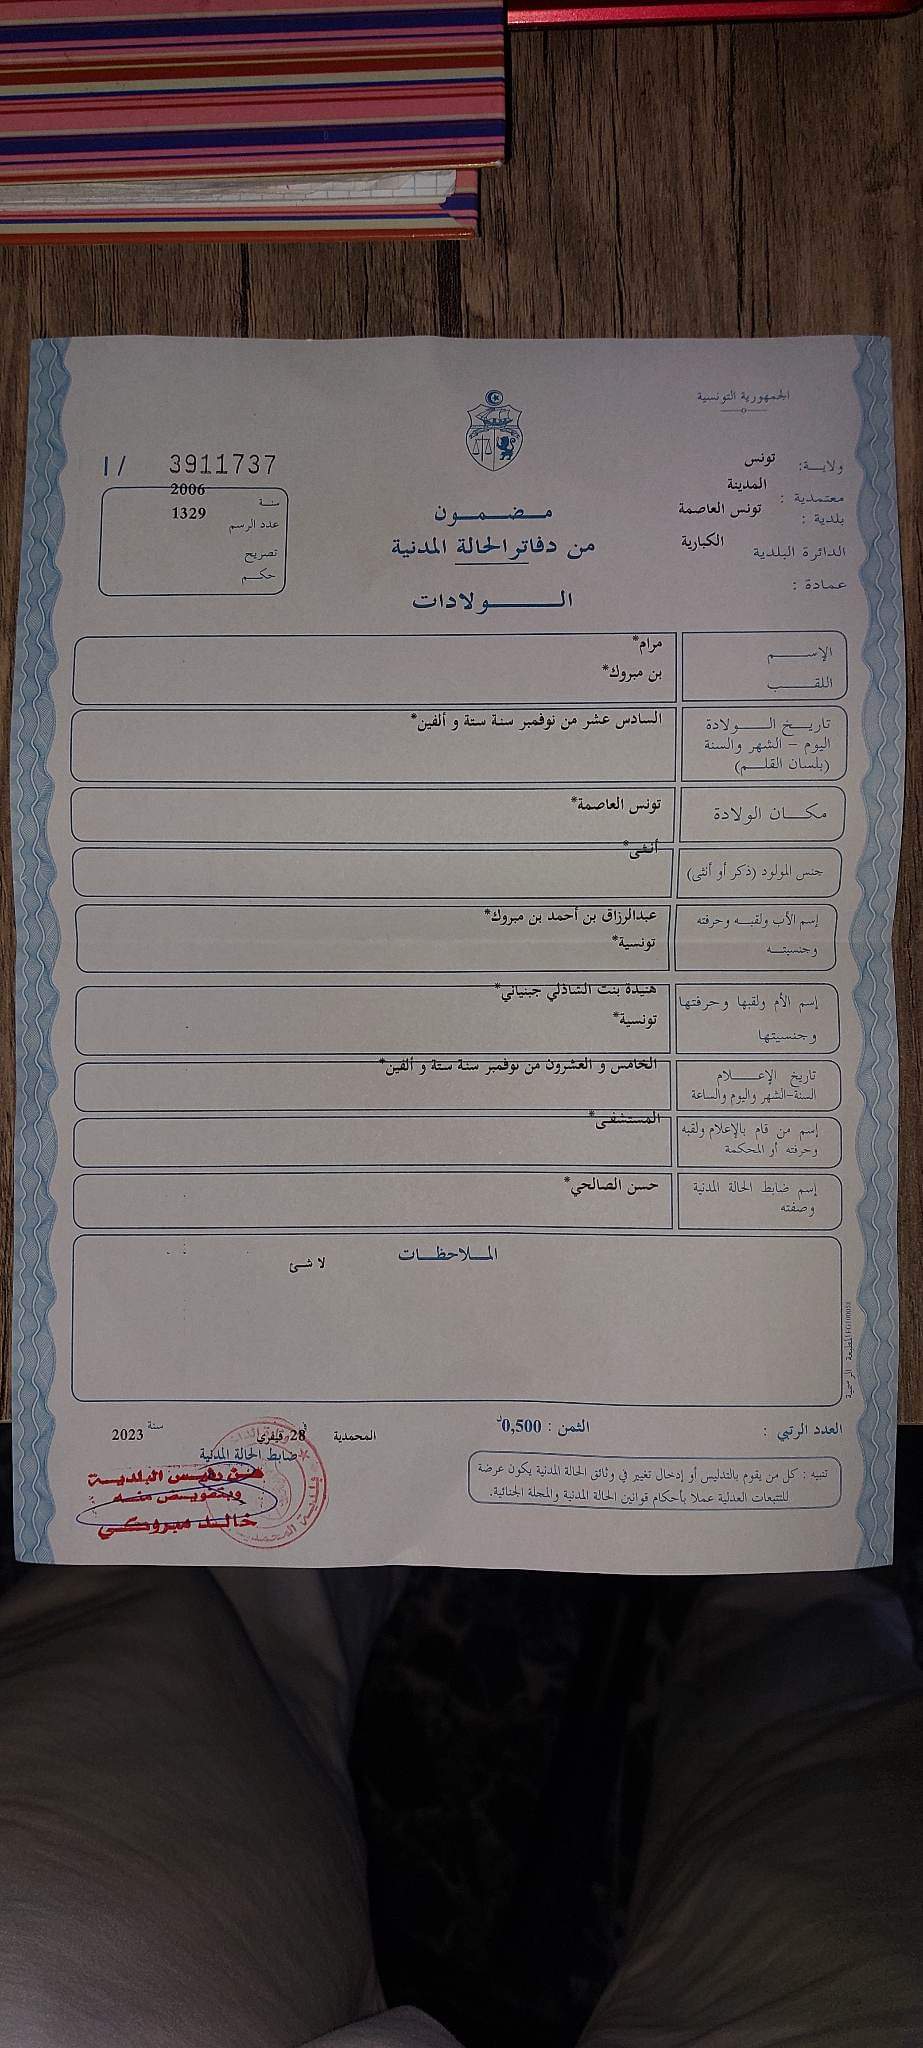 الجمهورية التونسية
ولاية: تونس
معتمدية : المدينة
بلدية : تونس العاصمة
الدائرة البلدية الكبارية
عمادة :
3911737 / I
سنة 2006
عدد الرسم 1329
تصريح
حكم
مضمون
من دفاتر الحالة المدنية
الولادات
الإسم مرام*
اللقب بن مبروك*
تاريخ الولادة السادس عشر من نوفمبر سنة ستة و ألفين*
اليوم - الشهر والسنة
(بلسان القلم)
مكان الولادة تونس العاصمة*
جنس المولود (ذكر أو أنثى) أنثى*
إسم الأب ولقبه وحرفته عبدالرزاق بن أحمد بن مبروك*
وجنسيته تونسية*
إسم الأم ولقبها وحرفتها هنيدة بنت الشاذلي جبنياني*
وجنسيتها تونسية*
تاريخ الإعلام الخامس و العشرون من نوفمبر سنة ستة و ألفين*
السنة-الشهر واليوم والساعة
إسم من قام بالإعلام ولقبه المستشفى*
وحرفته أو المحكمة
إسم ضابط الحالة المدنية حسن الصالحي*
وصفته
الملاحظات
لا شئ
المطبعة الرسمية
العدد الرتبي :
الثمن : 0,500د
المحمدية في 28 فيفري سنة 2023
ضابط الحالة المدنية
عن رئيس البلدية
وبتفويض منه
خالد مبروكي
تنبيه : كل من يقوم بالتدليس أو إدخال تغيير في وثائق الحالة المدنية يكون عرضة
للتتبعات العدلية عملا بأحكام قوانين الحالة المدنية والمجلة الجنائية.